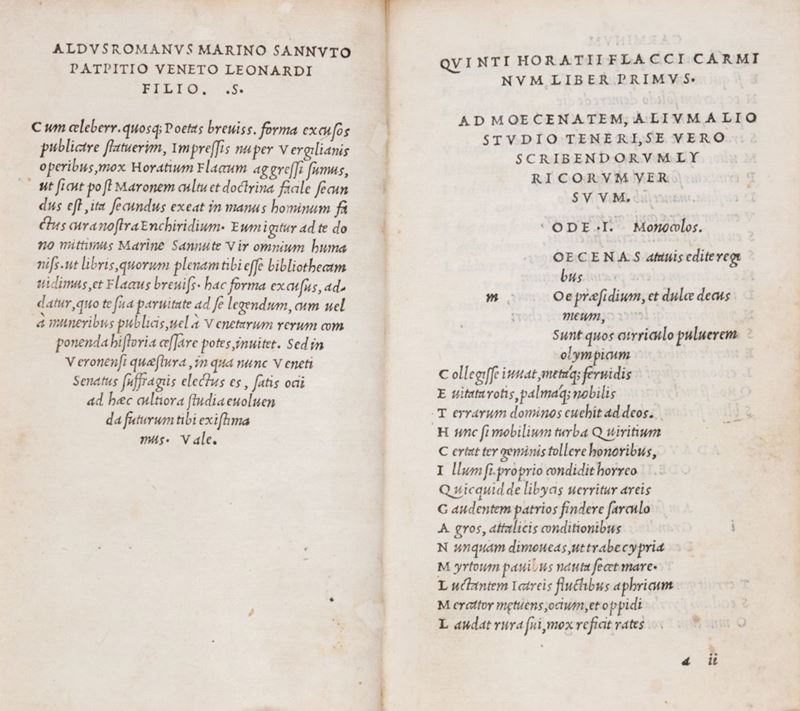 ALDVSROMANVS MARINO SANNVTO
PATPITIO VENETO LEONARDI
FILIO. .S.
C um celeberr. quosq; Poetas breuiss. forma excusos
publicare statuerim, Impressis nuper Vergilianis
operibus, mox Horatium Flaccum aggressi sumus,
ut sicut post Maronem cultu et doctrina facile secun
dus est, ita secundus exeat in manus hominum fa
ctus cura nostra Enchiridium. Eum igitur ad te do
no mittimus Marine Sannute Vir omnium huma
niss. ut libris, quorum plenam tibi esse bibliothecam
uidimus, et Flaccus breuiss. hac forma excusus, ad-
datur, quo te sua paruitate ad se legendum, cum uel
à muneribus publicis, uel à Venetarum rerum com
ponenda historia cessare potes, inuitet. Sed in
Veronensi quæstura, in qua nunc Veneti
Senatus suffragiis electus es, satis ocii
ad hæc cultiora studia euoluen
da futurum tibi existima
mus. Vale.
QVINTI HORATII FLACCI CARMI
NVM LIBER PRIMVS.
AD MOECENATEM, ALIVM ALIO
STVDIO TENERI, SE VERO
SCRIBENDORVM LY
RICORVM VER
SVVM.
ODE .I. Monocolos.
m
OECENAS atauis edite regi
bus
O e præsidium, et dulce decus
meum,
Sunt quos curriculo puluerem
olympicum
C ollegisse iuuat, metaq; feruidis
E uitata rotis, palmaq; nobilis
T errarum dominos euehit ad deos.
H unc si mobilium turba Quiritium
C ertat ter geminis tollere honoribus,
I llum si proprio condidit horreo
Q uicquid de libycis uerritur areis
G audentem patrios findere sarculo
A gros, attalicis conditionibus
N unquam dimoueas, ut trabe cypria
M yrtoum pauidus nauta secet mare.
L uctantem Icareis fluctibus aphricum
M ercator metuens, ocium, et oppidi
L audat rura sui, mox reficit rates
a ii